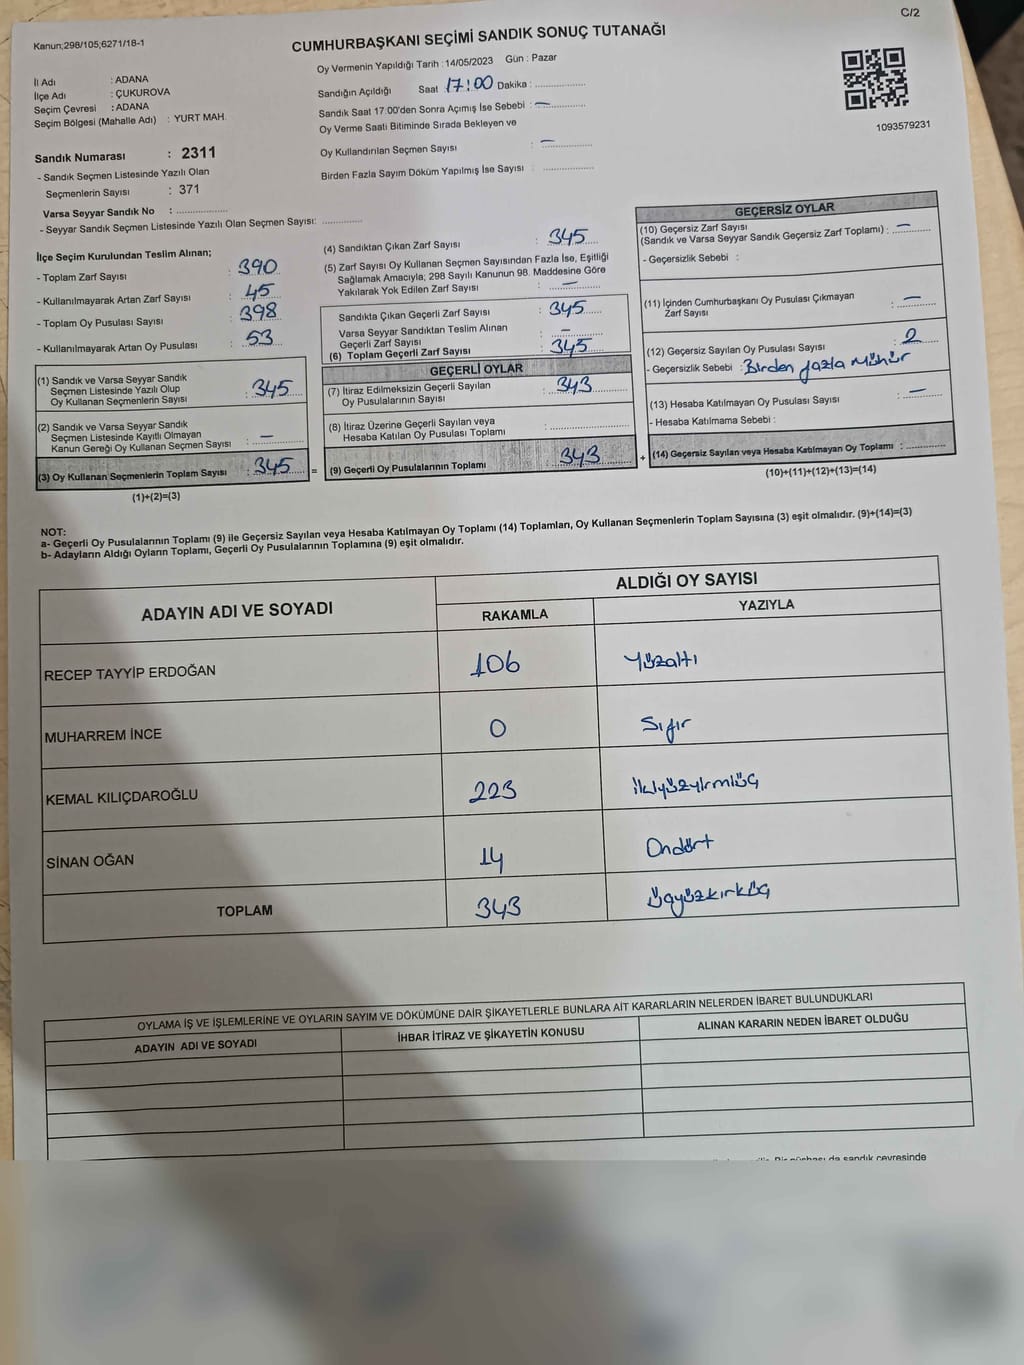 C/2
Kanun;298/105;6271/18-1
CUMHURBAŞKANI SEÇİMİ SANDIK SONUÇ TUTANAĞI
Oy Vermenin Yapıldığı Tarih : 14/05/2023 Gün : Pazar
İl Adı : ADANA
İlçe Adı : ÇUKUROVA
Seçim Çevresi : ADANA
Seçim Bölgesi (Mahalle Adı) : YURT MAH.
Sandığın Açıldığı Saat 17:00 Dakika : ................
Sandık Saat 17:00'den Sonra Açımış İse Sebebi : —
Oy Verme Saati Bitiminde Sırada Bekleyen ve
Oy Kullandırılan Seçmen Sayısı : —
Birden Fazla Sayım Döküm Yapılmış İse Sayısı : ................
1093579231
Sandık Numarası : 2311
- Sandık Seçmen Listesinde Yazılı Olan
Seçmenlerin Sayısı : 371
Varsa Seyyar Sandık No : ................
- Seyyar Sandık Seçmen Listesinde Yazılı Olan Seçmen Sayısı: .............
İlçe Seçim Kurulundan Teslim Alınan;
- Toplam Zarf Sayısı : 390
- Kullanılmayarak Artan Zarf Sayısı : 45
- Toplam Oy Pusulası Sayısı : 398
- Kullanılmayarak Artan Oy Pusulası : 53
(1) Sandık ve Varsa Seyyar Sandık
Seçmen Listesinde Yazılı Olup
Oy Kullanan Seçmenlerin Sayısı : 345
(2) Sandık ve Varsa Seyyar Sandık
Seçmen Listesinde Kayıtlı Olmayan
Kanun Gereği Oy Kullanan Seçmen Sayısı : —
(3) Oy Kullanan Seçmenlerin Toplam Sayısı : 345 =
(1)+(2)=(3)
(4) Sandıktan Çıkan Zarf Sayısı : 345
(5) Zarf Sayısı Oy Kullanan Seçmen Sayısından Fazla İse, Eşitliği
Sağlamak Amacıyla; 298 Sayılı Kanunun 98. Maddesine Göre
Yakılarak Yok Edilen Zarf Sayısı : —
Sandıkta Çıkan Geçerli Zarf Sayısı : 345
Varsa Seyyar Sandıktan Teslim Alınan
Geçerli Zarf Sayısı : —
(6) Toplam Geçerli Zarf Sayısı : 345
GEÇERLİ OYLAR
(7) İtiraz Edilmeksizin Geçerli Sayılan
Oy Pusulalarının Sayısı : 343
(8) İtiraz Üzerine Geçerli Sayılan veya
Hesaba Katılan Oy Pusulası Toplamı : ................
(9) Geçerli Oy Pusulalarının Toplamı : 343 +
GEÇERSİZ OYLAR
(10) Geçersiz Zarf Sayısı
(Sandık ve Varsa Seyyar Sandık Geçersiz Zarf Toplamı) : —
- Geçersizlik Sebebi :
(11) İçinden Cumhurbaşkanı Oy Pusulası Çıkmayan
Zarf Sayısı : —
(12) Geçersiz Sayılan Oy Pusulası Sayısı : 2
- Geçersizlik Sebebi : Birden fazla mühür
(13) Hesaba Katılmayan Oy Pusulası Sayısı : —
- Hesaba Katılmama Sebebi :
(14) Geçersiz Sayılan veya Hesaba Katılmayan Oy Toplamı : ............
(10)+(11)+(12)+(13)=(14)
NOT:
a- Geçerli Oy Pusulalarının Toplamı (9) ile Geçersiz Sayılan veya Hesaba Katılmayan Oy Toplamı (14) Toplamları, Oy Kullanan Seçmenlerin Toplam Sayısına (3) eşit olmalıdır. (9)+(14)=(3)
b- Adayların Aldığı Oyların Toplamı, Geçerli Oy Pusulalarının Toplamına (9) eşit olmalıdır.
ADAYIN ADI VE SOYADI ALDIĞI OY SAYISI
RAKAMLA YAZIYLA
RECEP TAYYİP ERDOĞAN 106 Yüzaltı
MUHARREM İNCE 0 Sıfır
KEMAL KILIÇDAROĞLU 223 ikiyüzyirmiüç
SİNAN OĞAN 14 Ondört
TOPLAM 343 üçyüzkırküç
OYLAMA İŞ VE İŞLEMLERİNE VE OYLARIN SAYIM VE DÖKÜMÜNE DAİR ŞİKAYETLERLE BUNLARA AİT KARARLARIN NELERDEN İBARET BULUNDUKLARI
ADAYIN ADI VE SOYADI İHBAR İTİRAZ VE ŞİKAYETİN KONUSU ALINAN KARARIN NEDEN İBARET OLDUĞU
da sandık çevresinde